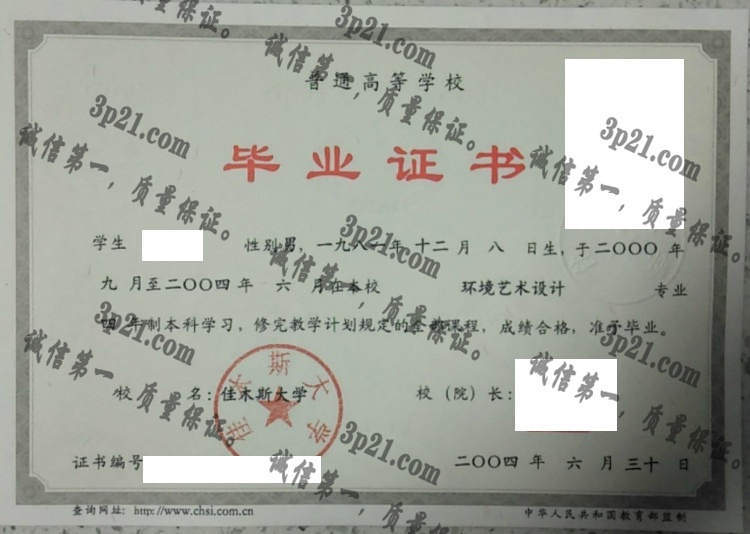 普通高等学校
毕业证书
学生 性别男，一九八一年 十二 月 八 日生，于二〇〇〇 年
九 月至二〇〇四年 六 月在本校 环境艺术设计 专业
四 年制本科学习，修完教学计划规定的全部课程，成绩合格，准予毕业。
校 名：佳木斯大学 校（院）长：
佳木斯大学
证书编号 二〇〇四 年 六 月 三十 日
查询网址：http://www.chsi.com.cn 中华人民共和国教育部监制
3p21.com
诚信第一，质量保证。
3p21.com
诚信第一，质量保证。
3p21.com
诚信第一，质量保证。
3p21.com
诚信第一，质量保证。
3p21.com
诚信第一，质量保证。
3p21.com
诚信第一，质量保证。
3p21.com
诚信第一，质量保证。